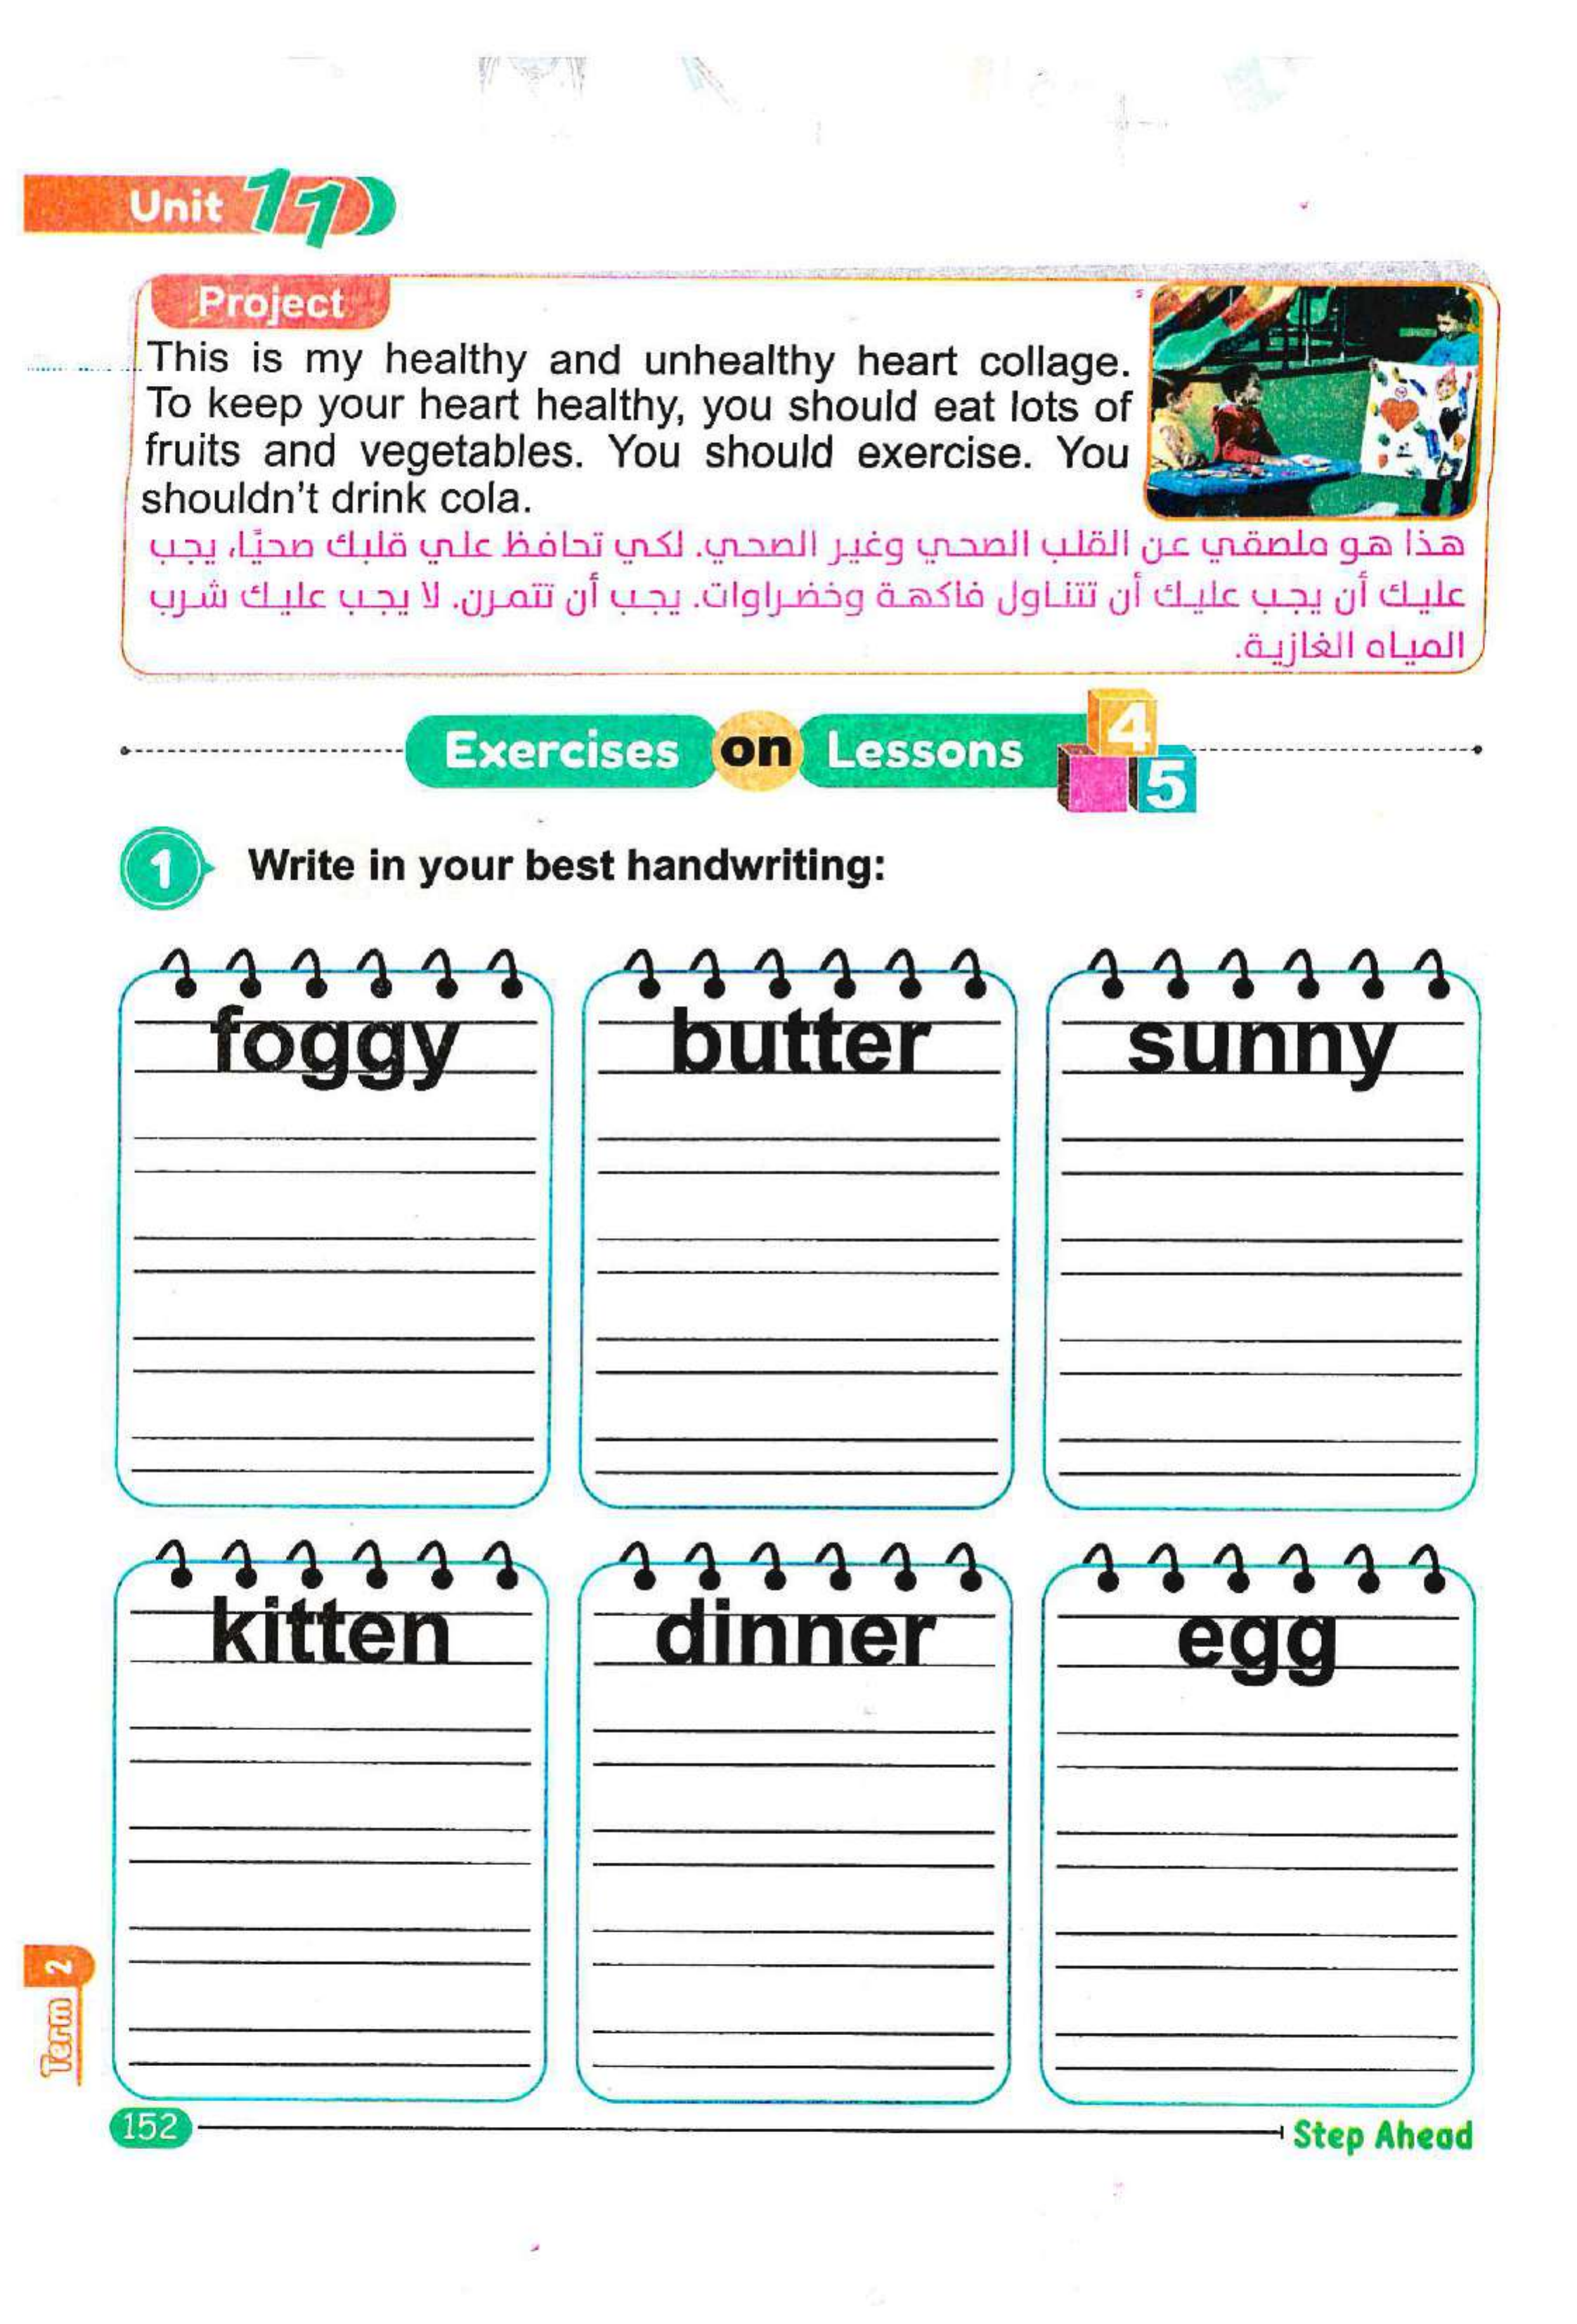 Unit 11
Project
This is my healthy and unhealthy heart collage.
To keep your heart healthy, you should eat lots of
fruits and vegetables. You should exercise. You
shouldn't drink cola.
هذا هو ملصقي عن القلب الصحي وغير الصحي. لكي تحافظ علي قلبك صحيًا، يجب
عليك أن يجب عليك أن تتناول فاكهة وخضراوات. يجب أن تتمرن. لا يجب عليك شرب
المياه الغازية.
Exercises on Lessons 4 5
1 Write in your best handwriting:
foggy butter sunny
kitten dinner egg
Term 2
152 Step Ahead